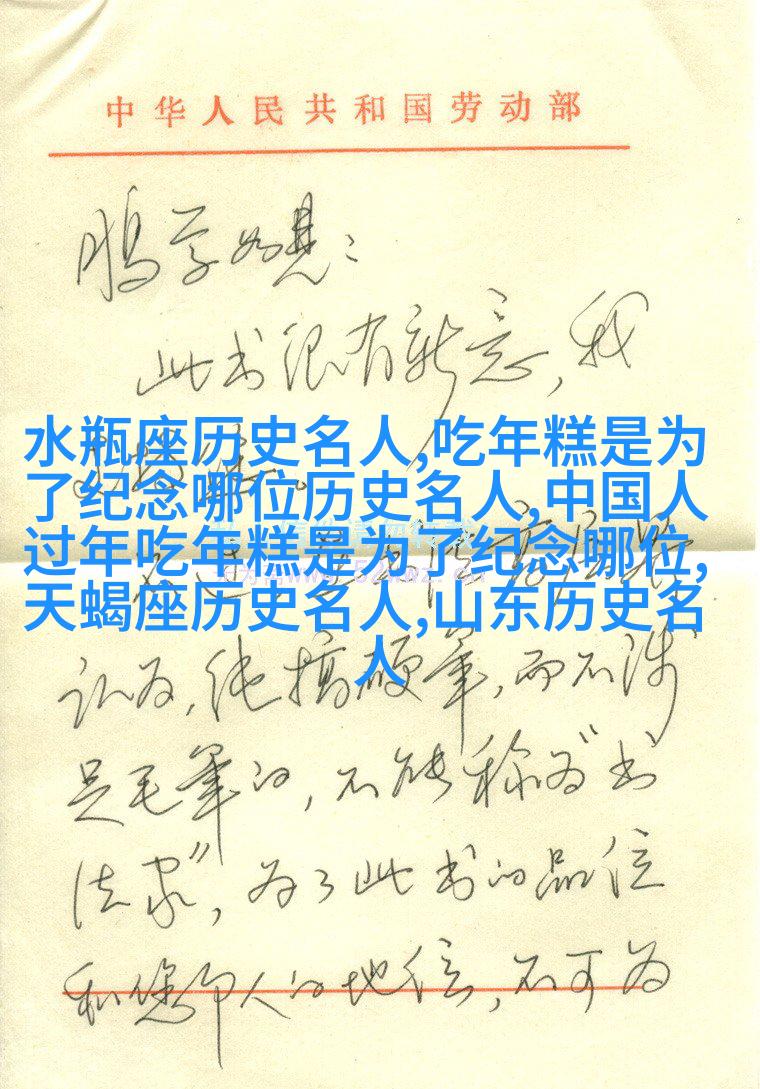 中华人民共和国劳动部
鹏 如
此书很有新意，我
水瓶座历史名人,吃年糕是为
了纪念哪位历史名人,中国人
过年吃年糕是为了纪念哪位,
天蝎座历史名人,山东历史名
人
认为，纯搞硬笔，而不涉
足毛笔的，不能称为“书
法家”，为了此书的品位
和您印人的地位，不可为